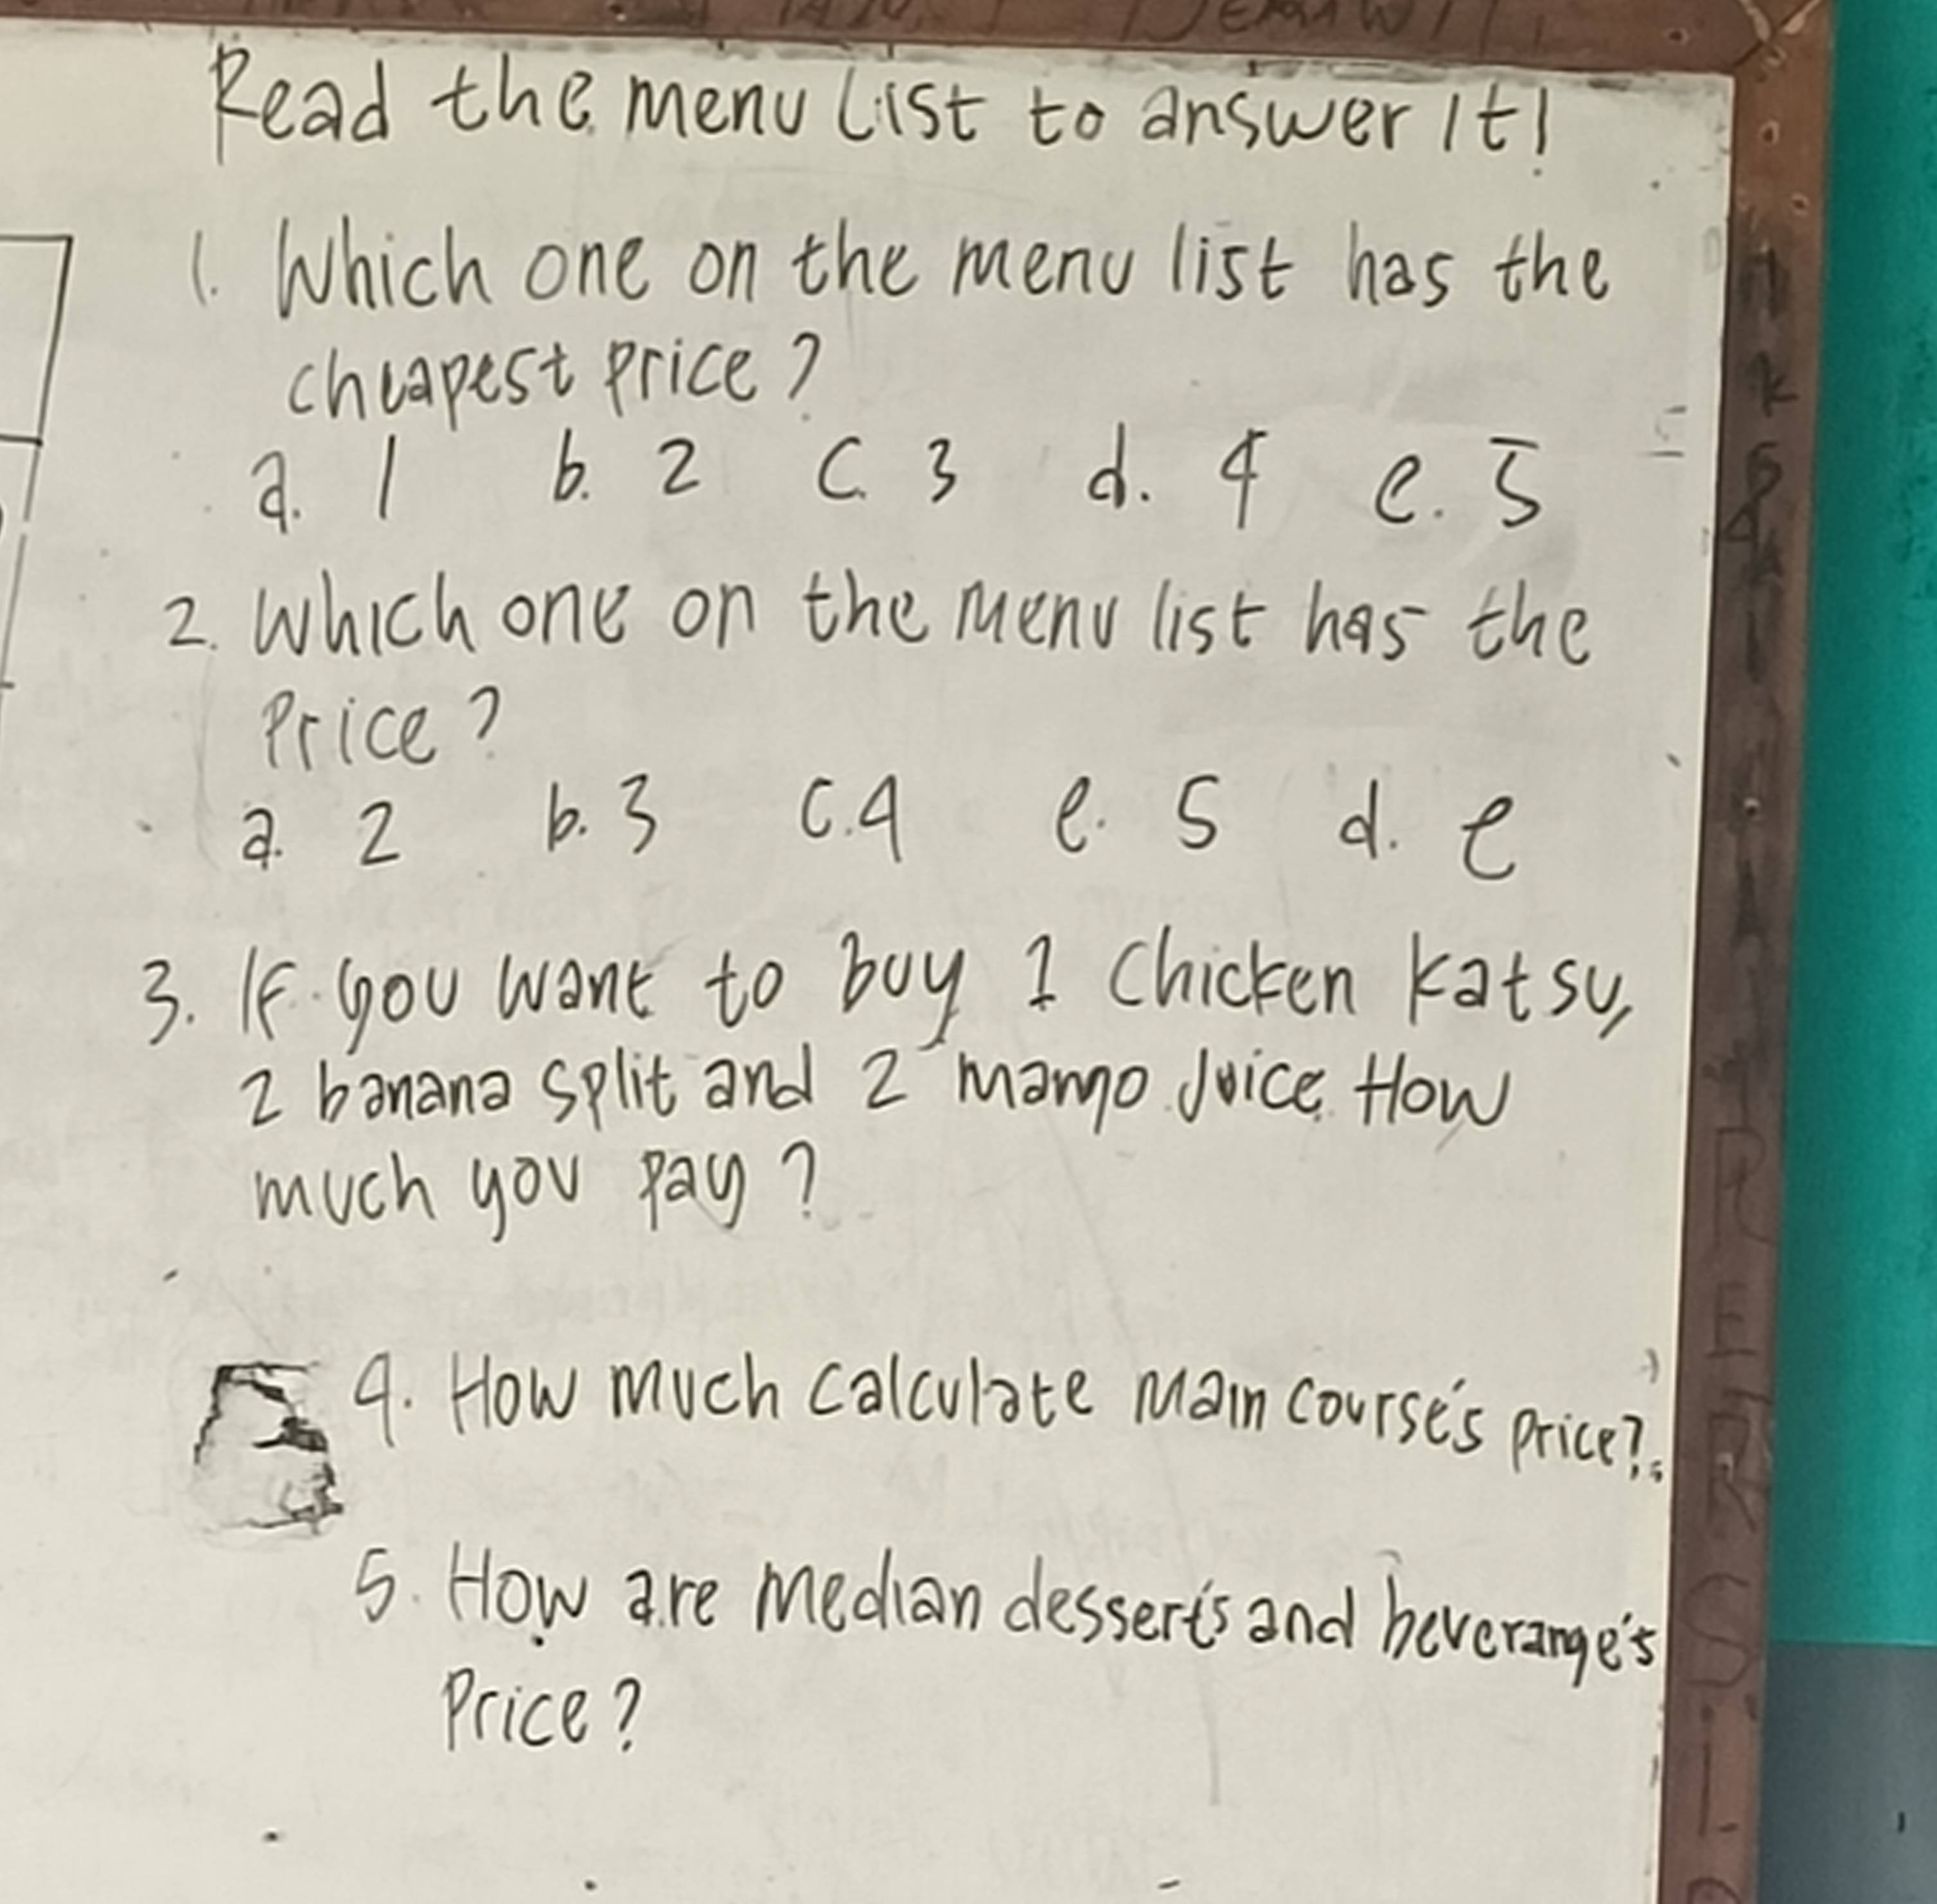 Read the menu list to answer it!
1. Which one on the menu list has the
cheapest price?
a. 1 b. 2 c. 3 d. 4 e. 5
2. Which one on the menu list has the
Price?
a. 2 b. 3 c. 4 e. 5 d. e
3. If you want to buy 1 Chicken katsu,
2 banana split and 2 mango juice. How
much you pay?
4. How much calculate main course's price?
5. How are median dessert's and beverange's
Price?